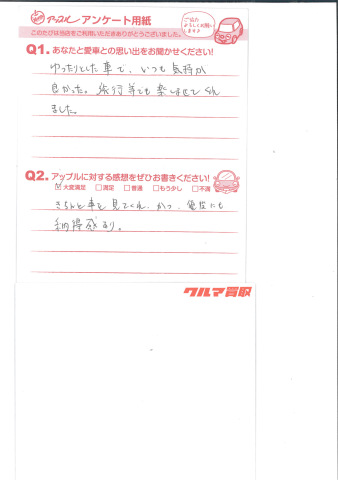 アップル アンケート用紙
ご協力
よろしくお願い
します♪
このたびは当店をご利用いただきありがとうございました。
Q1.あなたと愛車との思い出をお聞かせください!
ゆったりとした車で、いつも気持が
良かった。旅行等でも楽しませてくれ
ました。
Q2.アップルに対する感想をぜひお書きください!
☑大変満足 □満足 □普通 □もう少し □不満
きちんと車を見てくれ、かつ、査定にも
納得感あり。
クルマ買取